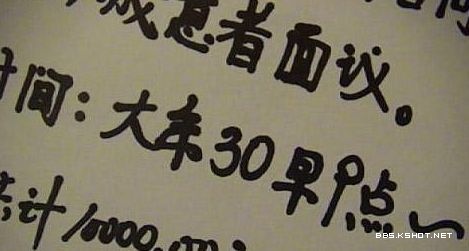 诚意者面议。
时间：大年30早9点～
共计10000.00
BBS.KSHOT.NET